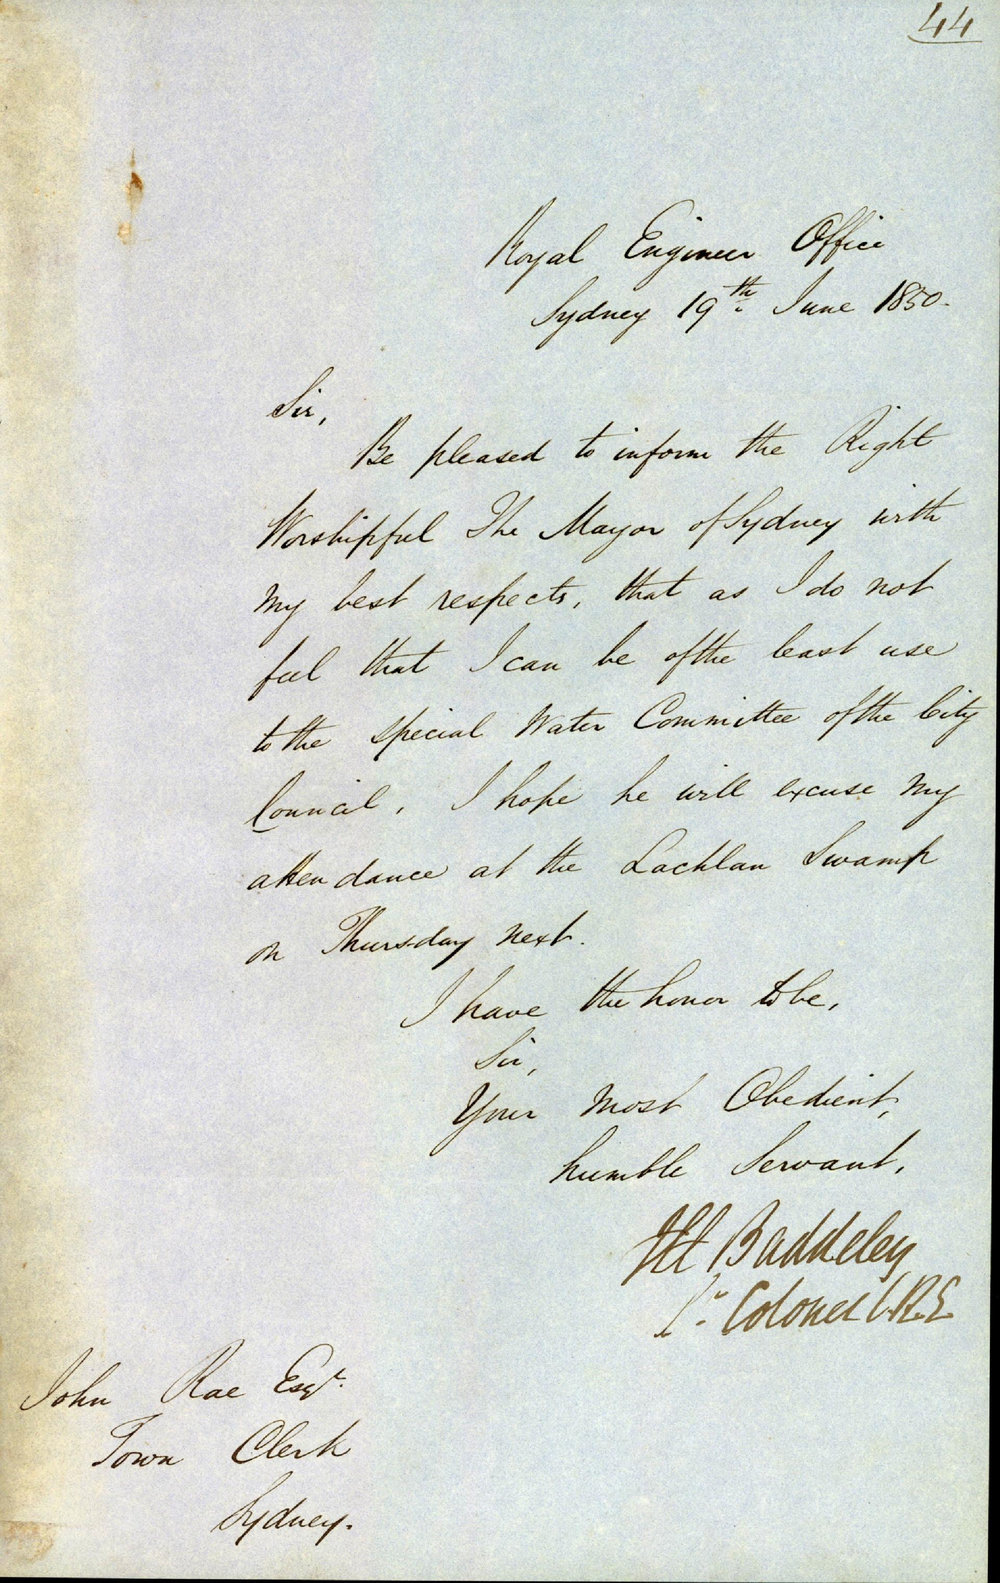 44
Royal Engineer Office
Sydney 19th June 1850.
Sir,
Be pleased to inform the Right
Worshipful The Mayor of Sydney with
my best respects, that as I do not
feel that I can be of the least use
to the special Water Committee of the City
Council, I hope he will excuse my
attendance at the Lachlan Swamp
on Thursday next.
I have the honor to be,
Sir,
Your most Obedient,
humble Servant,
Baddeley
Lt. Colonel C.R.E.
John Rae Esqr.
Town Clerk
Sydney.